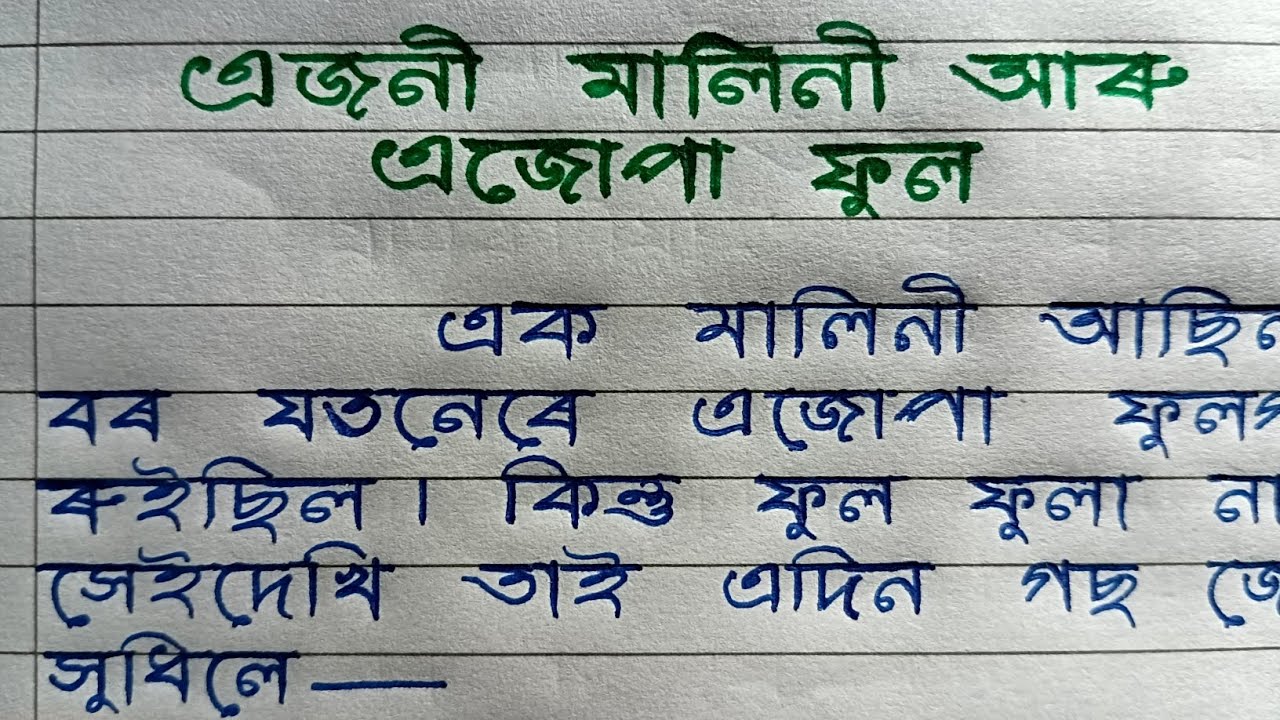 এজনী মালিনী আৰু
এজোপা ফুল
এক মালিনী
বৰ যতনেৰে এজোপা
ৰুইছিল। কিন্তু ফুল ফুলা
সেইদেখি তাই এদিন গছ
সুধিলে —